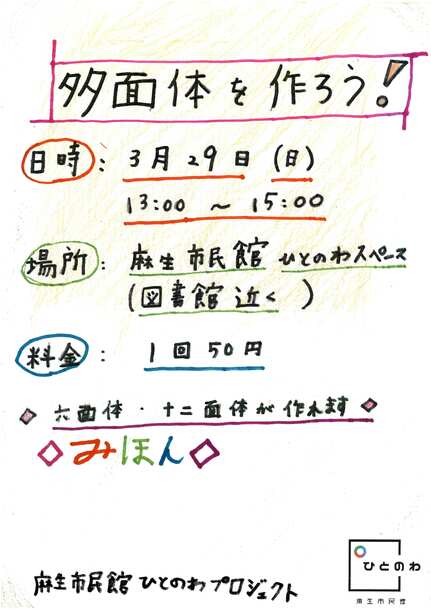 多面体を作ろう!
日時: 3月29日(日)
13:00 ~ 15:00
場所: 麻生市民館 ひとのわスペース
(図書館近く)
料金: 1回50円
◇ 六面体・十二面体が作れます ◇
◇みほん◇
ひとのわ
麻生市民館
麻生市民館ひとのわプロジェクト